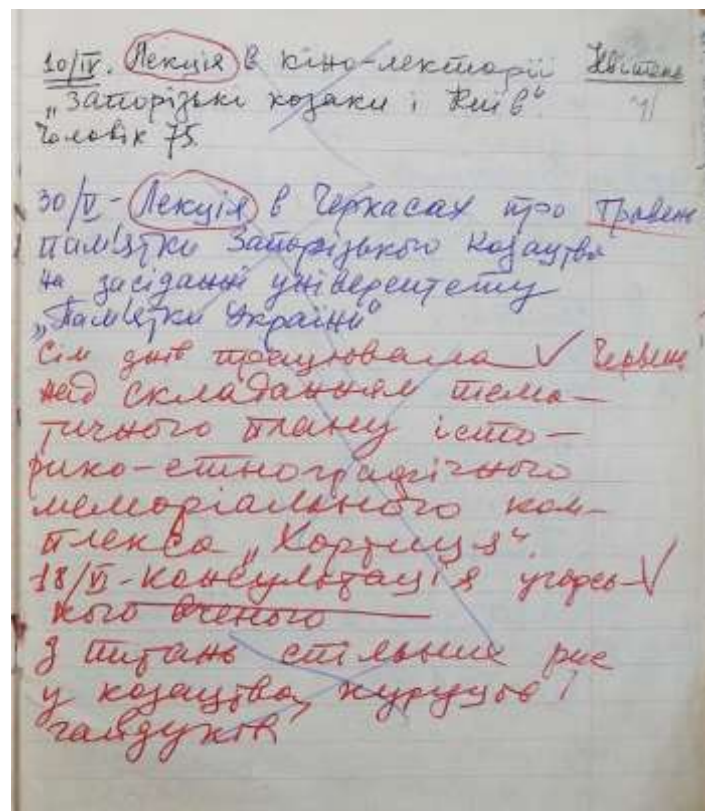 10/IV. Лекція в кіно-лекторії Квітень
„Запорізькі козаки і Київ“.
Чоловік 75.
30/V - Лекція в Черкасах про Травень
памʼятки Запорізького козацтва
на засіданні університету
„Памʼятки України“
Сім днів працювала ✓ Червень
над складанням тема-
тичного плану істо-
рико-етнографічного
меморіального ком-
плекса „Хортиця“.
18/VI - консультація угорсь- ✓
кого вченого
з питань спільних рис
у козацтва, куруців і
гайдуків